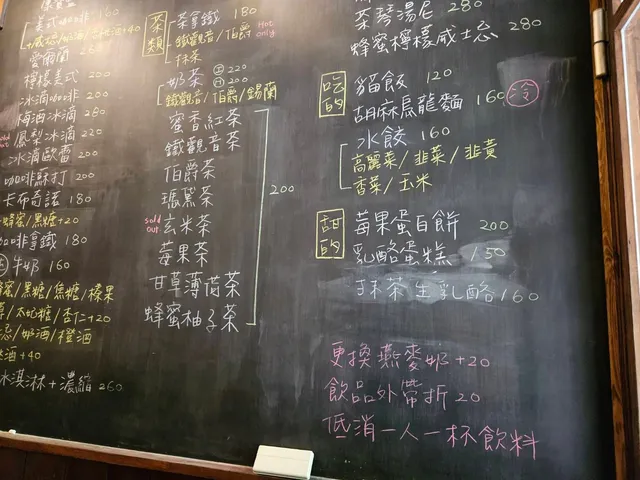 美式咖啡 160
威士忌/奶酒/甜酒+40
愛爾蘭
檸檬美式 200
冰滴咖啡 200
梅酒冰滴 280
鳳梨冰滴 220
冰滴歐蕾 200
咖啡蘇打 200
卡布奇諾 180
蜂蜜/黑糖+20
咖啡拿鐵 180
牛奶 160
蜂蜜/黑糖/焦糖/榛果
/太妃糖/杏仁+20
/奶酒/橙酒
+40
冰淇淋+濃縮 260
茶類
茶拿鐵 180
鐵觀音/伯爵
抹茶
Hot only
奶茶 220
200
鐵觀音/伯爵/錫蘭
蜜香紅茶
鐵觀音茶
伯爵茶
瑪黛茶
sold out 玄米茶
莓果茶
甘草薄荷茶
蜂蜜柚子茶
200
茶琴湯尼 280
蜂蜜檸檬威士忌 280
吃的
貓飯 120
胡麻烏龍麵 160 冷
水餃 160
高麗菜/韭菜/韭黃
香菜/玉米
甜的
莓果蛋白餅 200
乳酪蛋糕 150
抹茶生乳酪 160
更換燕麥奶+20
飲品外帶折20
低消一人一杯飲料